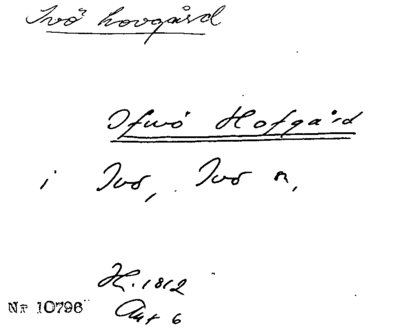 Ivö hovgård
Ifwö Hofgård
i Ivö, Ivö n,
H. 1812
Akt 6
Nr 10796